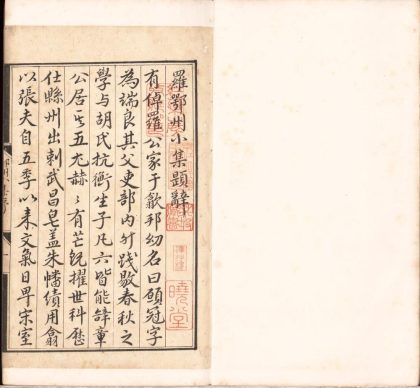 羅鄂州小集題辭
有倬羅公家于歙邦幼名曰頠冠字
為端良其父吏部內外踐敭春秋之
學与胡氏抗衡生子凡六皆能辞章
公居其五尤赫〻有芒既擢世科歷
仕縣州出刺武昌皂盖朱幡績用翕
以張夫自五季以来文氣日卑宋室
曉堂